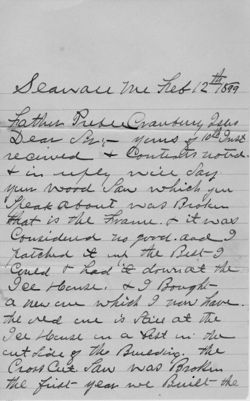 Seawall Me Feb 12th 1899
Father Preble Cranbury Isles
Dear Sir;- yours of 10th Inst
received & Contents noted.
& in reply will say
your wood Saw which you
Speak about was Broken
that is the Frame. & it was
Considered no good. and I
Patched it up the Best I
Could & had it down at the
Ice House. & I Bought
a new one which I now have.
the old one is Still at the
Ice House in a Post in the
out Side of the Building. the
Cross Cut Saw was Broken
the first year we Built the